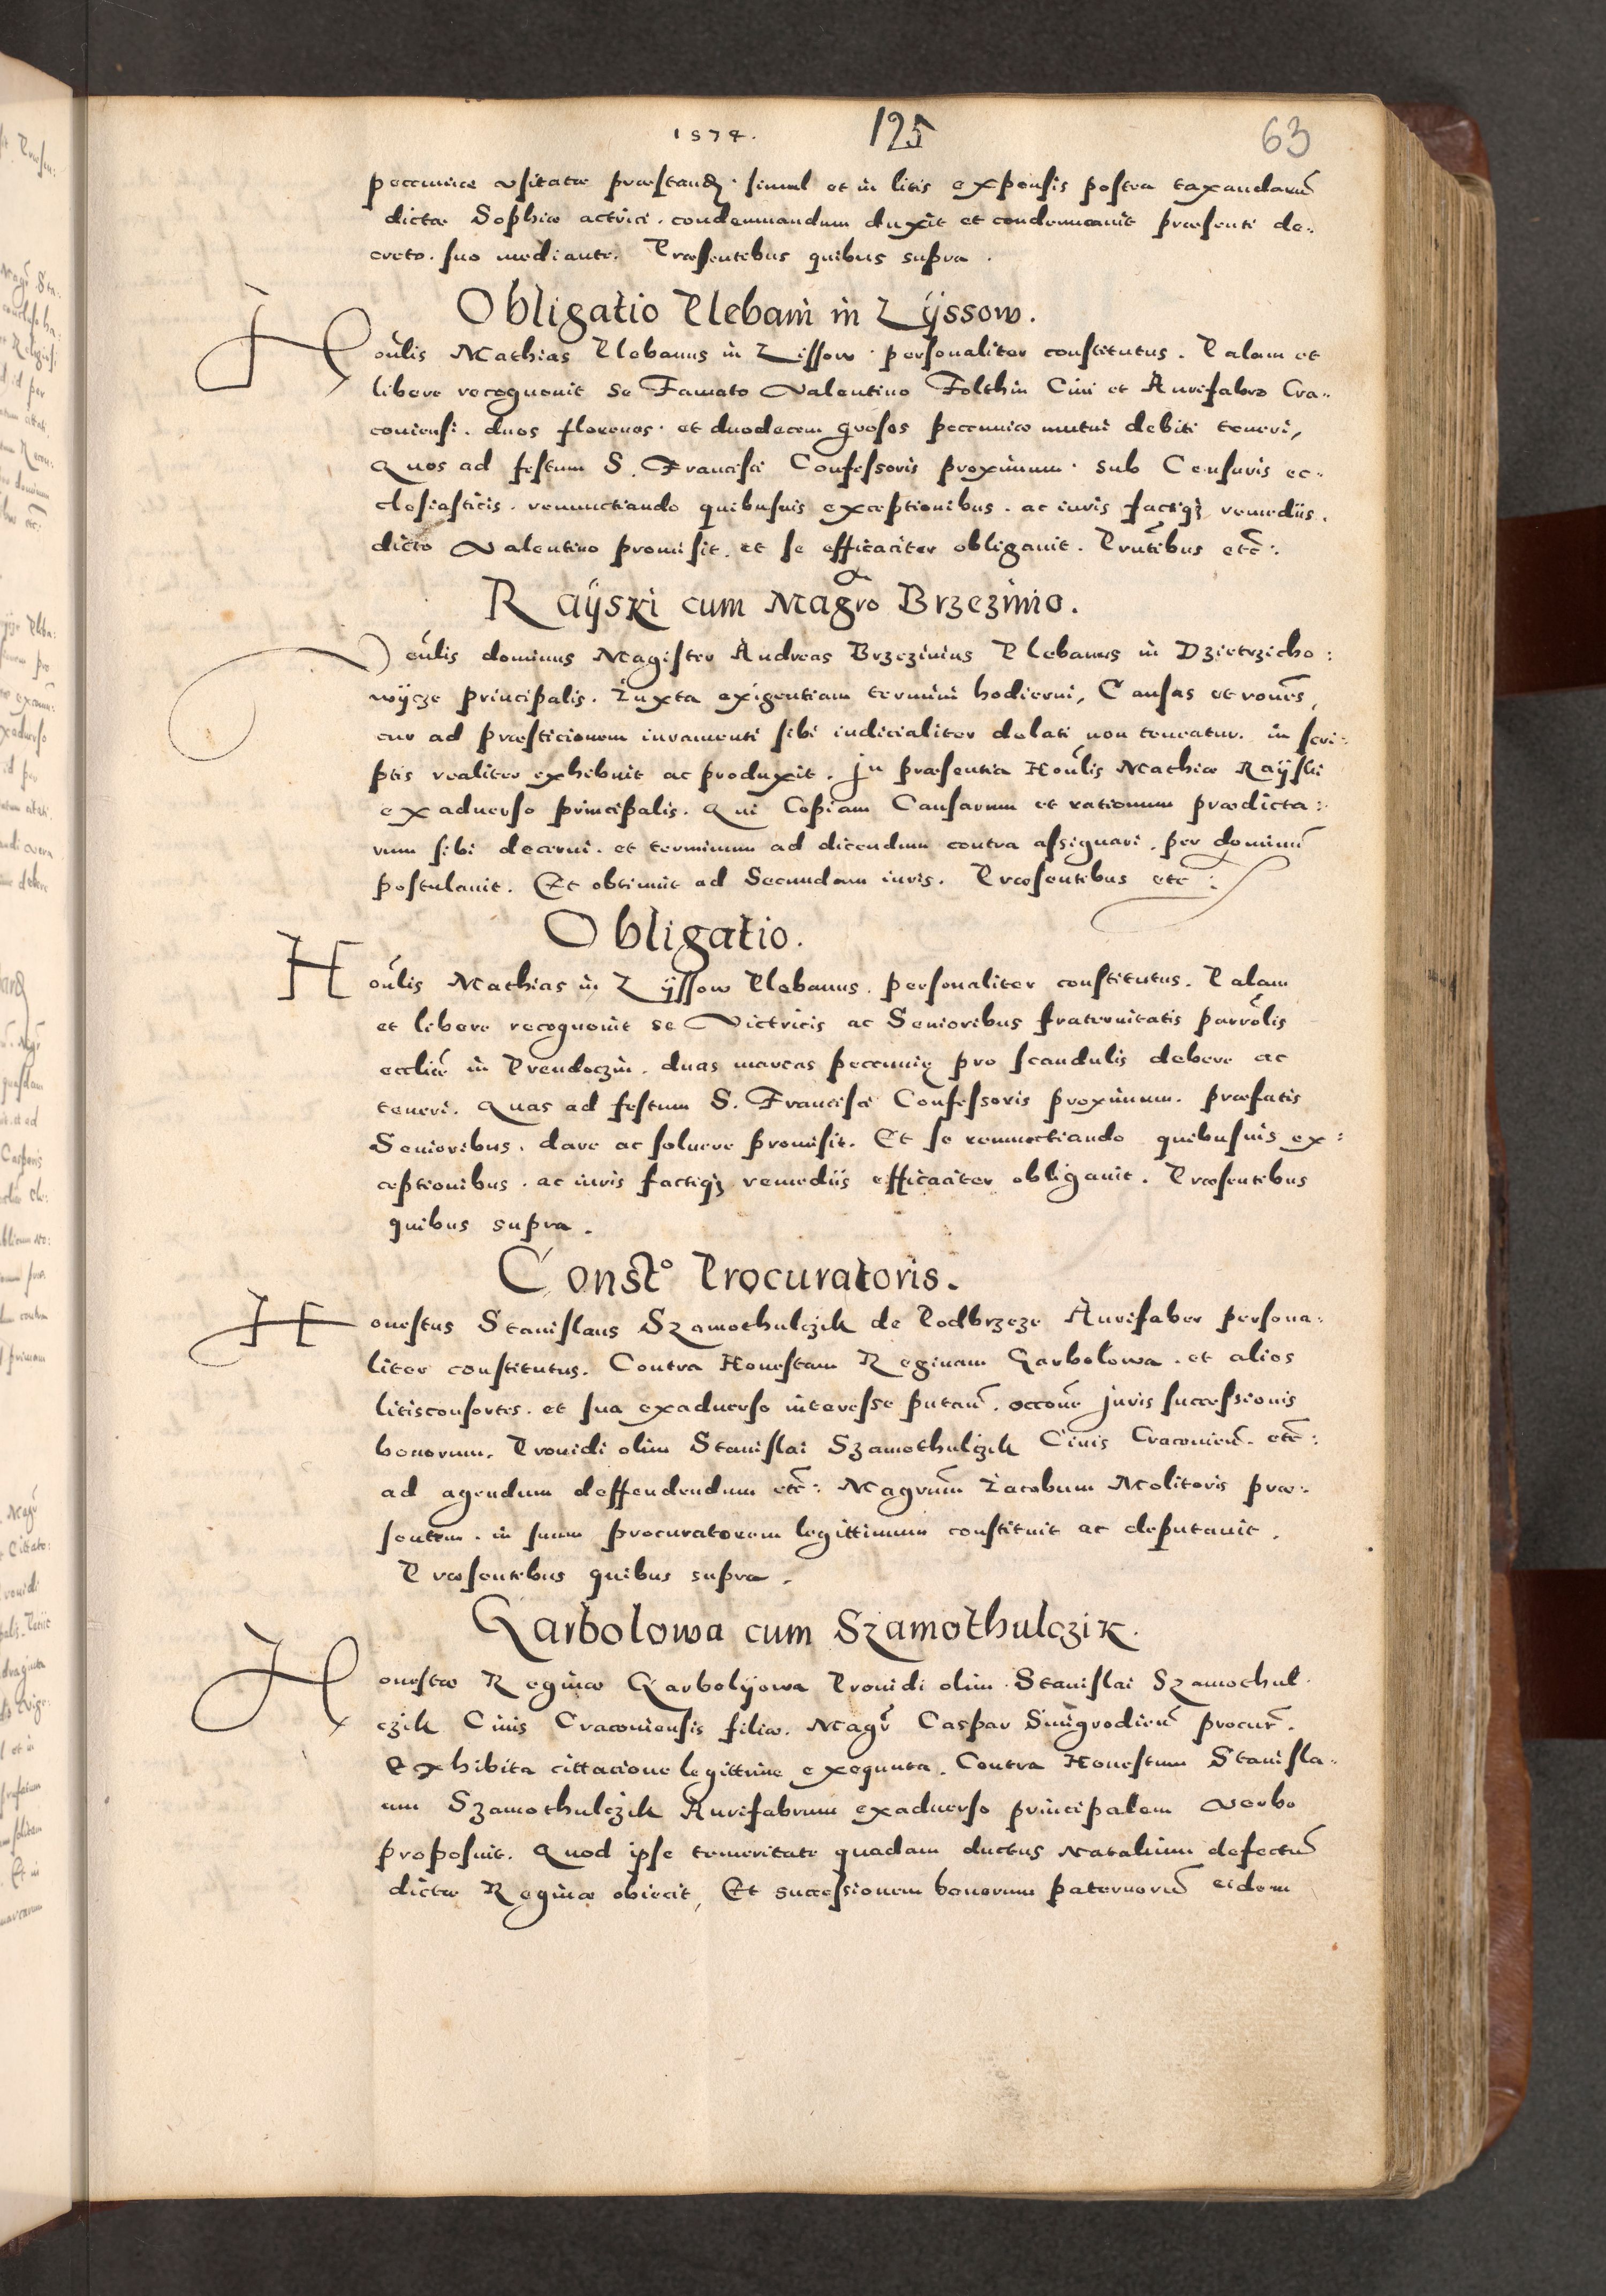 1574. 125 63
peccuniæ usitatæ præstandȝ. simul et in litis expensis postea taxandarū
dictæ Sophiæ actrici. condemnandum duxit et condemnauit præsenti de:
creto. suo mediante. Præsentebus quibus supra.
Obligatio Plebani in Lÿssow.
Hon̄lis Mathias Plebanus in Lissow. personaliter constitutus. Palam et
libere recognouit se Famato Valentino Folthin Ciui et Aurifabro Cra„
couiensi. duos florenos. et duodecem grosos peccuniæ mutui debiti teneri,
Quos ad festum S. Francisci Confessoris proximum. sub Censuris ec:
clesiasticis. renunctiando quibusuis exceptionibus. ac iuris factiqȝ remediis.
dicto Valentino promisit. et se efficaciter obligauit. Prn̄tibus etc̄:.
Raÿski cum Magr̄o Brzezinio.
Ven̄lis dominus Magister Andreas Brzezinius Plebanus in Dzietrzicho:
wÿcze principalis. Iuxta exigentiam termini hodierni, Causas et ron̄es,
cur ad præsticionem iuramenti sibi iudicialiter delati non teneatur. in scri:
ptis realiter exhibuit ac produxit. In præsentia Hon̄lis Mathiæ Raÿski
ex aduerso principalis. Qui Copiam Causarum et rationum prædicta:
rum sibi decerni. et terminum ad dicendum contra assignari. per dominū
postulauit. Et obtinuit ad Secundam iuris. Præsentibus etc:
Obligatio.
Hon̄lis Mathias in Lÿssow Plebanus. personaliter constitutus. Palam
et libere recognouit se Victricis ac Senioribus fraternitatis parrōlis
ecclīæ in Prendoczin. duas marcas peccunię pro scandulis debere ac
teneri. Quas ad festum S. Francisci Confessoris proximum. præfatis
Senioribus. dare ac soluere promisit. Et se renunctiando quibusuis ex:
ceptionibus. ac iuris factiqȝ remediis efficaciter obligauit. Præsentebus
quibus supra.
Const̄º Procuratoris.
Honestus Stanislaus Szamothulczik de Podbrzeze Aurifaber persona:
liter constitutus. Contra Honestam Reginam Garbolowa. et alios
litisconsortes. et sua exaduerso interesse putan̄. occōne Juris successionis
bonorum. Prouidi olim Stanislai Szamothulczik Ciuis Cracouien̄. etc̄:
ad agendum deffendendum etc̄: Magrūm Iacobum Molitoris præ:
sentem. in suum procuratorem legittimum constituit ac deputauit.
Præsentebus quibus supra.
Garbolowa cum Szamothulczik.
Honestæ Reginæ Garbolÿowa Prouidi olim Stanislai Szamothul.
czik Ciuis Cracouiensis filiæ. Magr̄ Caspar Snuigrodien̄ procur̄.
Exhibita cittacione legittime exequuta. Contra Honestum Stanisla:
um Szamothulczik Aurifabrum exaduerso principalem verbo
proposuit. Quod ipse temeritate quadam ductus natalium defectū
dictæ Reginæ obiecit, Et successionem bonorum paternorū eidem